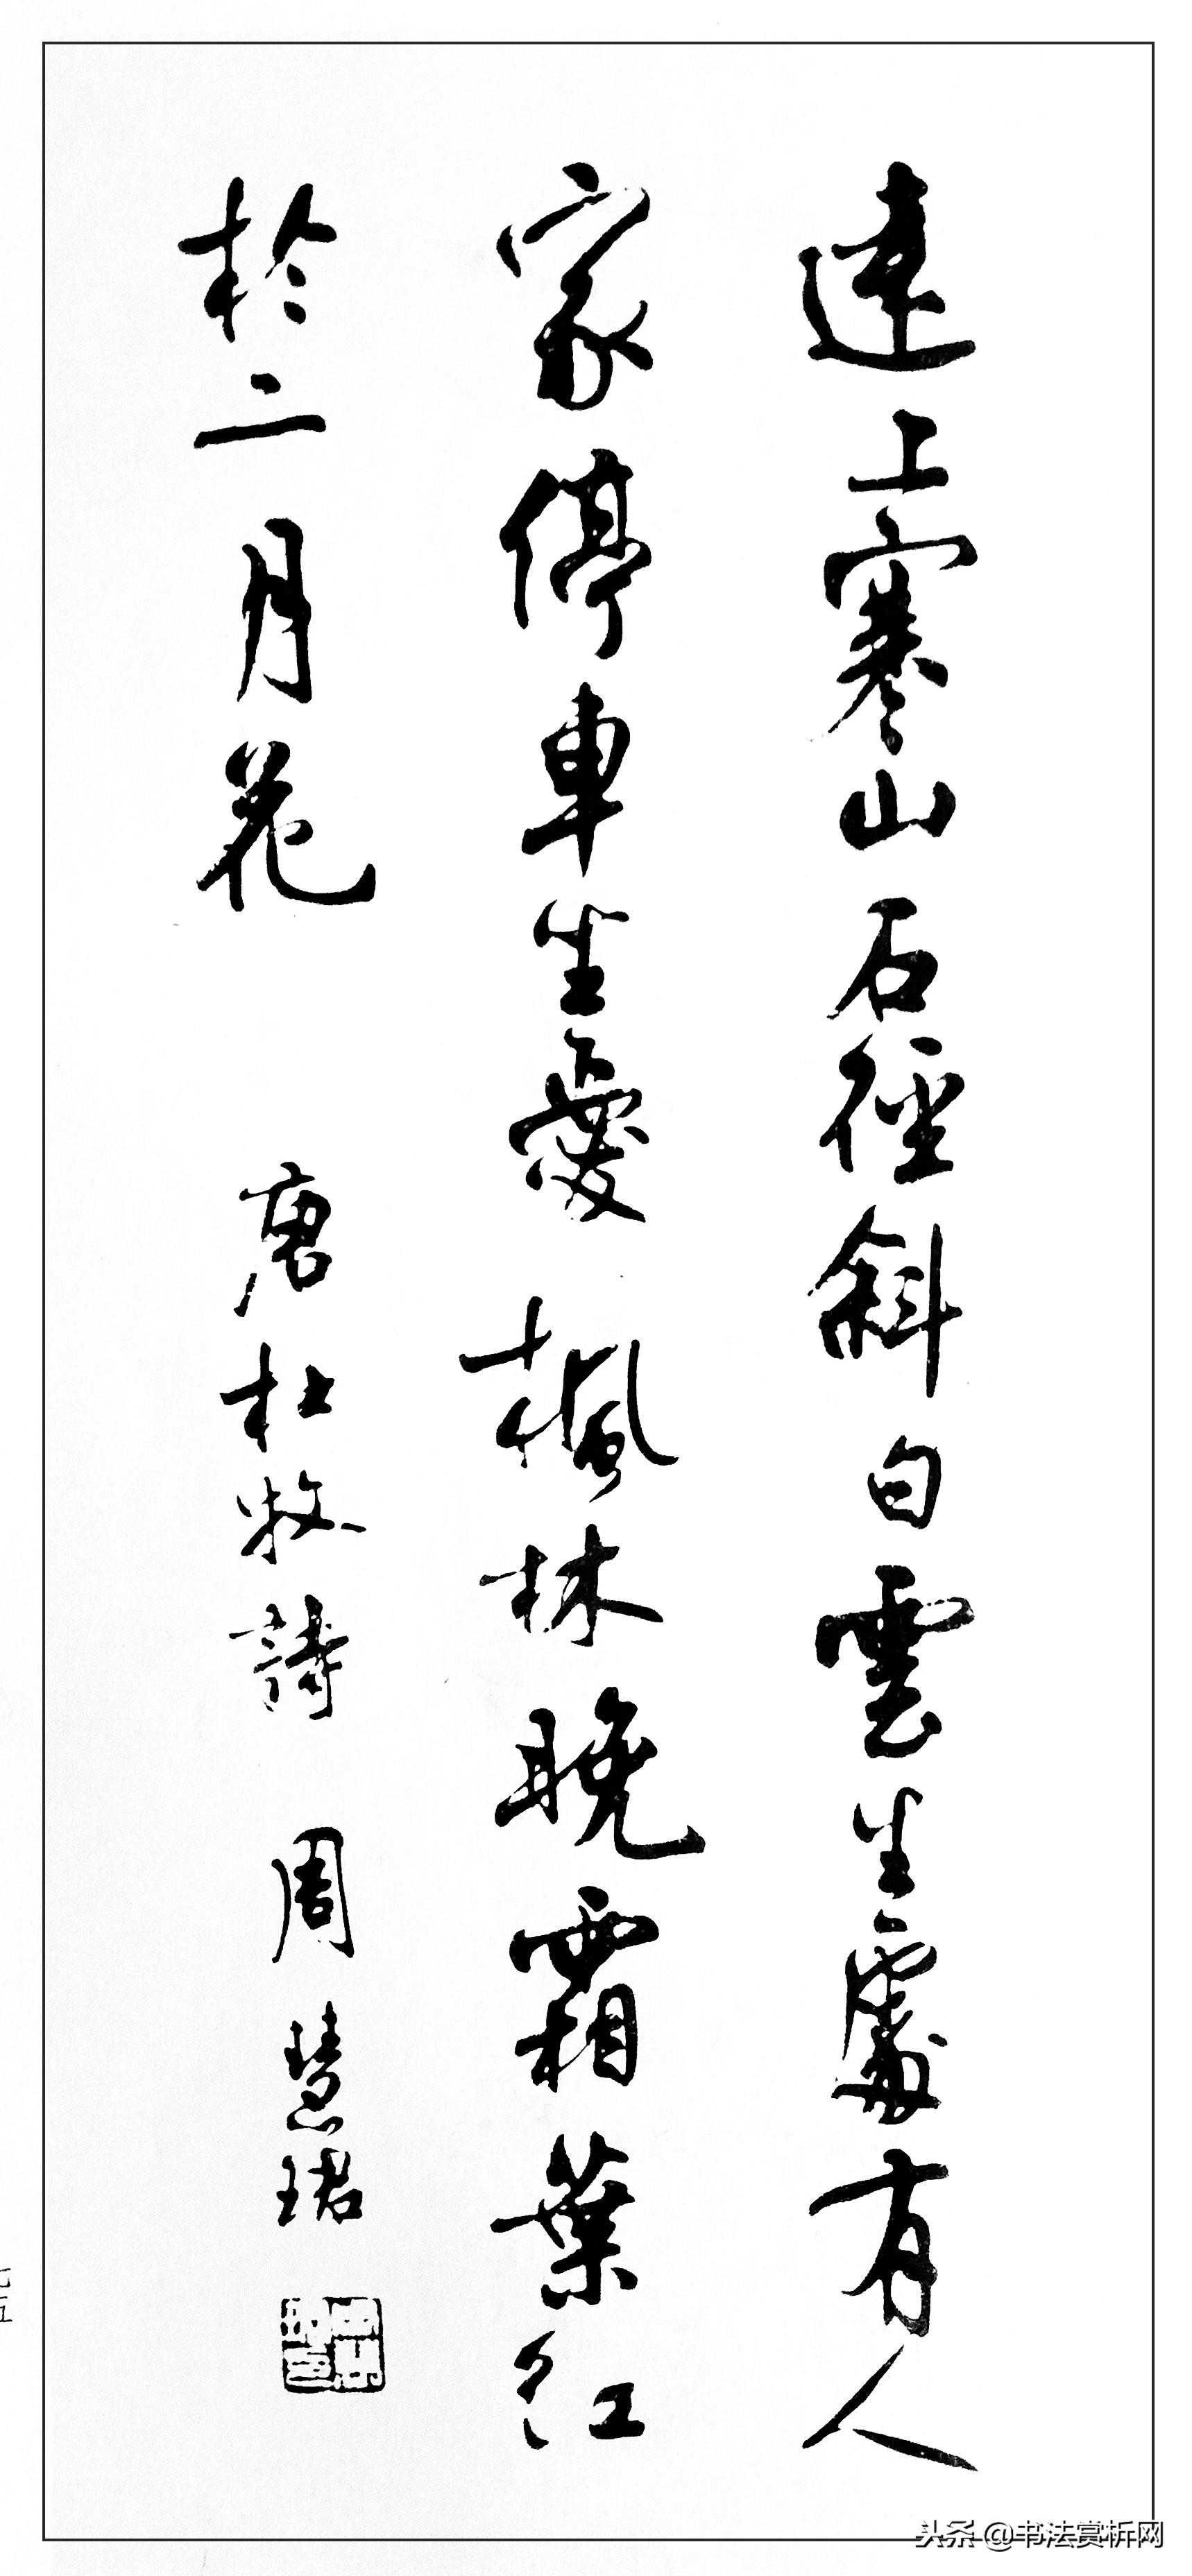 遠上寒山石徑斜白雲生處有人
家停車坐愛楓林晚霜葉紅
於二月花 唐杜牧詩 周慧珺
头条 @书法赏析网